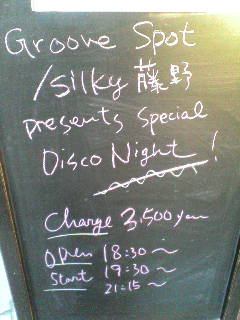 Groove Spot
/Silky 藤野
presents Special
Disco Night !
Charge 3,500yen
OPEN 18:30~
Start 19:30~
21:15~